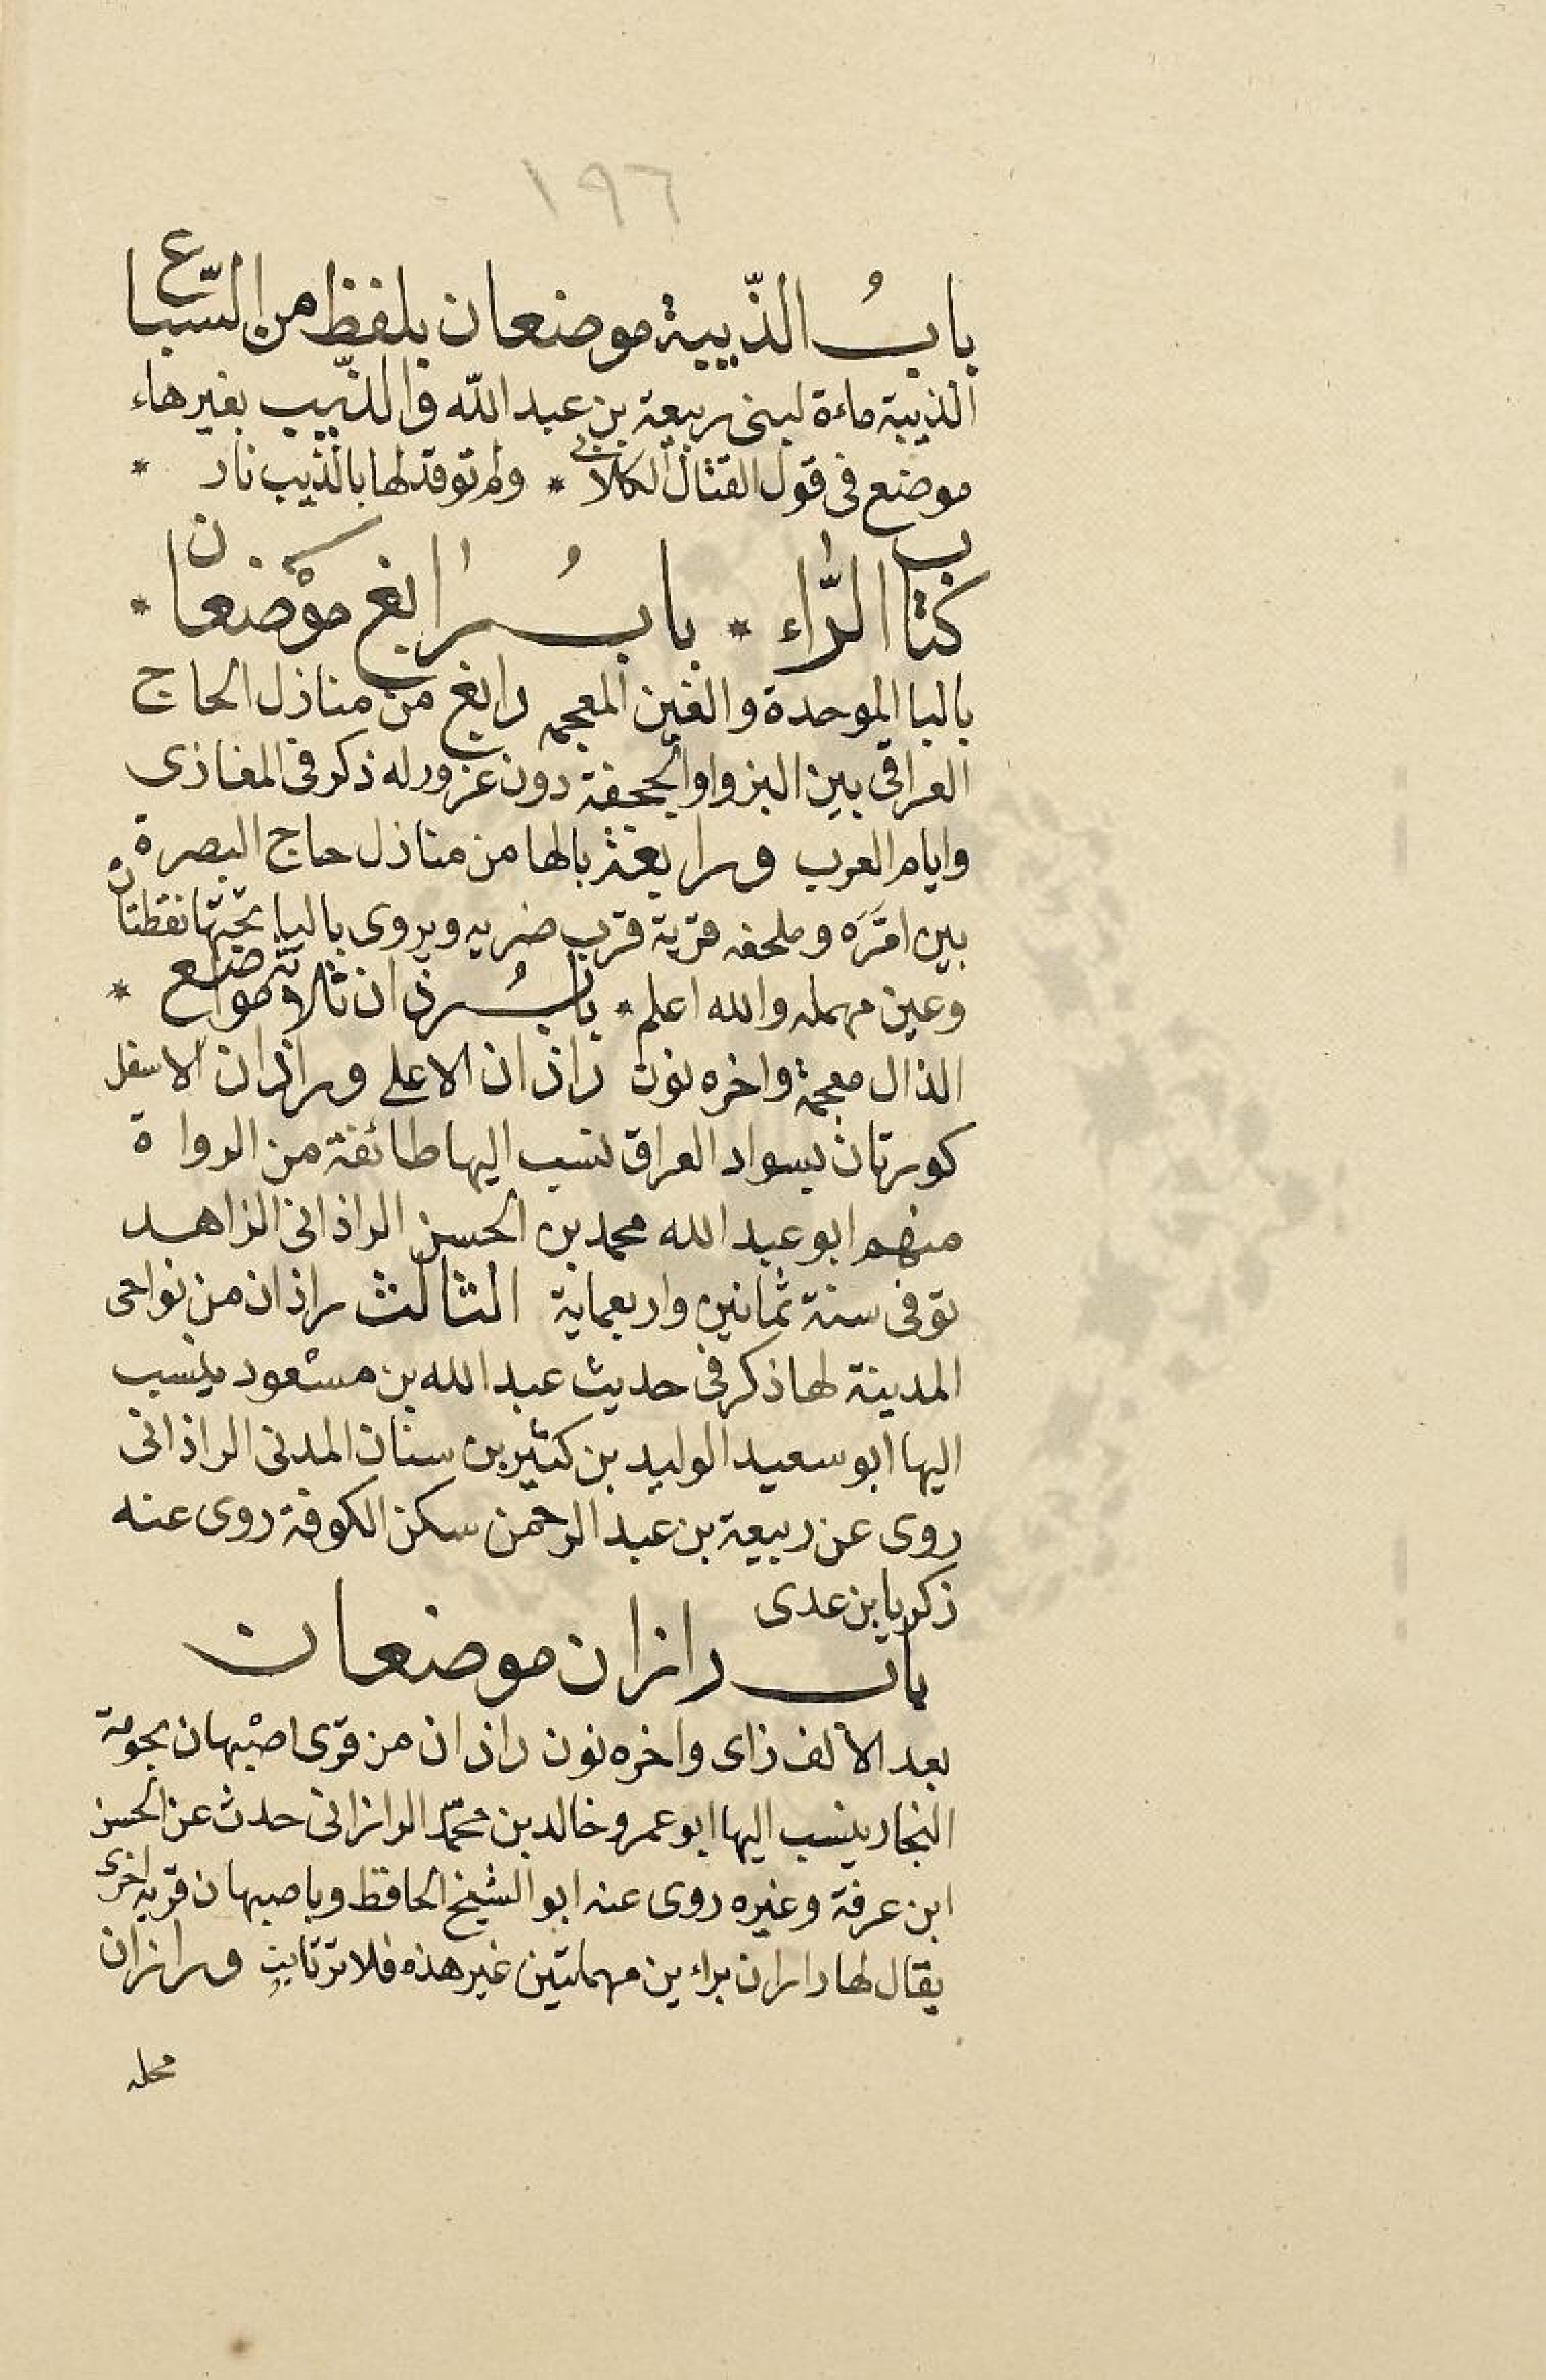 ١٩٦
بابُ الذّيبة موضعان بلفظ من السّباع
الذيبة ماءة لبنى ربيعة بن عبد الله والذّيب بغيرهاء
موضع فى قول القتال الكلابى * ولم توقد لها بالذيب نار *
كتاب الرّاء * بابُ رابغ موْضعان *
بالبا الموحدة والغين المعجمه رابغ من منازل الحاج
العراقى بين البزواو الجحفة دون عزور له ذكر فى المغازى
وايام العرب ورابغة بالها من منازل حاج البصرة
بين امَّرَه وطخفه قرية قرب ضريه ويروى باليا تحتها نقطتان
وعين مهمله والله اعلم * بابُ رذان ثلاثة مواضع *
الذال معجمة واخره نون راذان الاعلى وراذان الاسفل
كورتان بسواد العراق نسب اليها طائفة من الرواة
منهم ابو عبد الله محمد بن الحسن الراذانى الزاهد
توفى سنة ثمانين واربعماية الثالث راذان من نواحى
المدينة لها ذكر فى حديث عبد الله بن مسعود ينسب
اليها ابو سعيد الوليد بن كثير بن سنان المدنى الراذانى
روى عن ربيعة بن عبد الرحمن سكن الكوفة روى عنه
زكريا بن عدى
باب رازان موضعان
بعد الألف زاى واخره نون رازان من قرى اصبهان بحومة
النجار ينسب اليها ابو عمرو خالد بن محمّد الرازانى حدث عن الحسن
ابن عرفة وغيره روى عنه ابو الشيخ الحافظ وباصبهان قريه اخرى
يقال لها راران براءين مهملتين غير هذه فلا ترتابن ورازان
محله